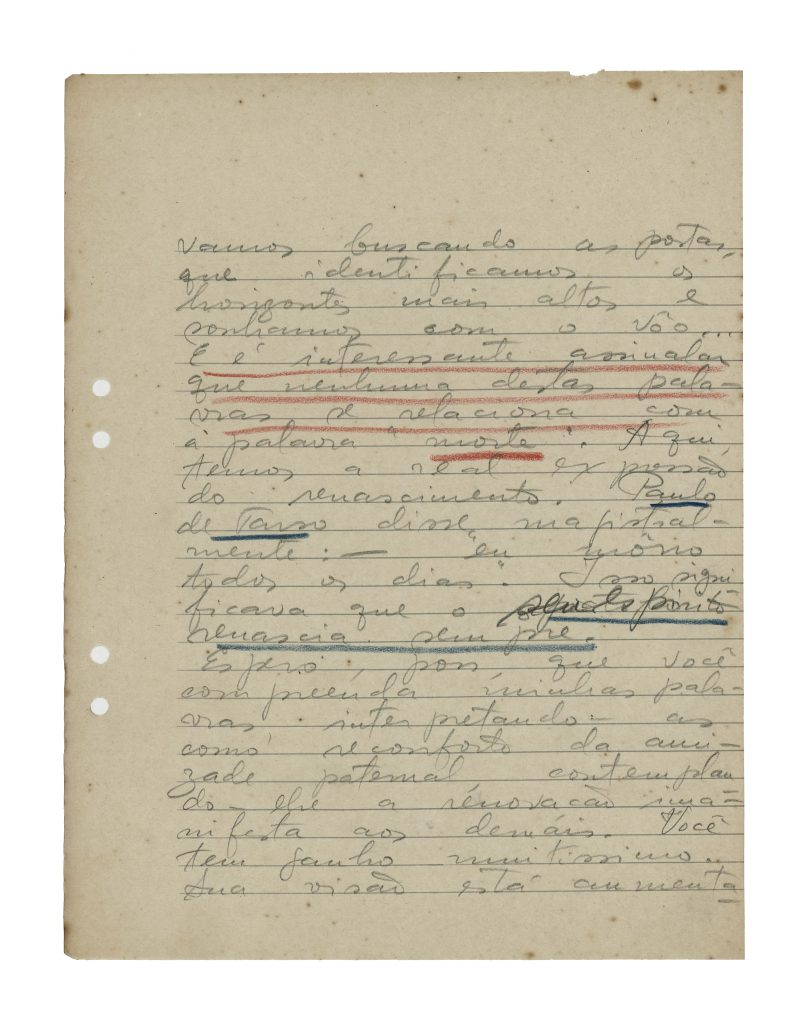 vamos buscando as portas,
que identificamos os
horizontes mais altos e
sonhamos com o vôo...
E é interessante assinalar
que nenhuma destas pala-
vras se relaciona com
a palavra "morte". Aqui,
temos a real expressão
do renascimento. Paulo
de Tarso disse magistral-
mente: — "eu morro
todos os dias". Isso signi
ficava que o espirito
renascia sempre.
Espero, pois, que você
compreenda minhas pala-
vras interpretando-as
como reconforto da ami-
zade paternal contemplan
do-lhe a renovação ima-
nifesta aos demais. Você
tem ganho muitissimo..
Sua visão está aumenta